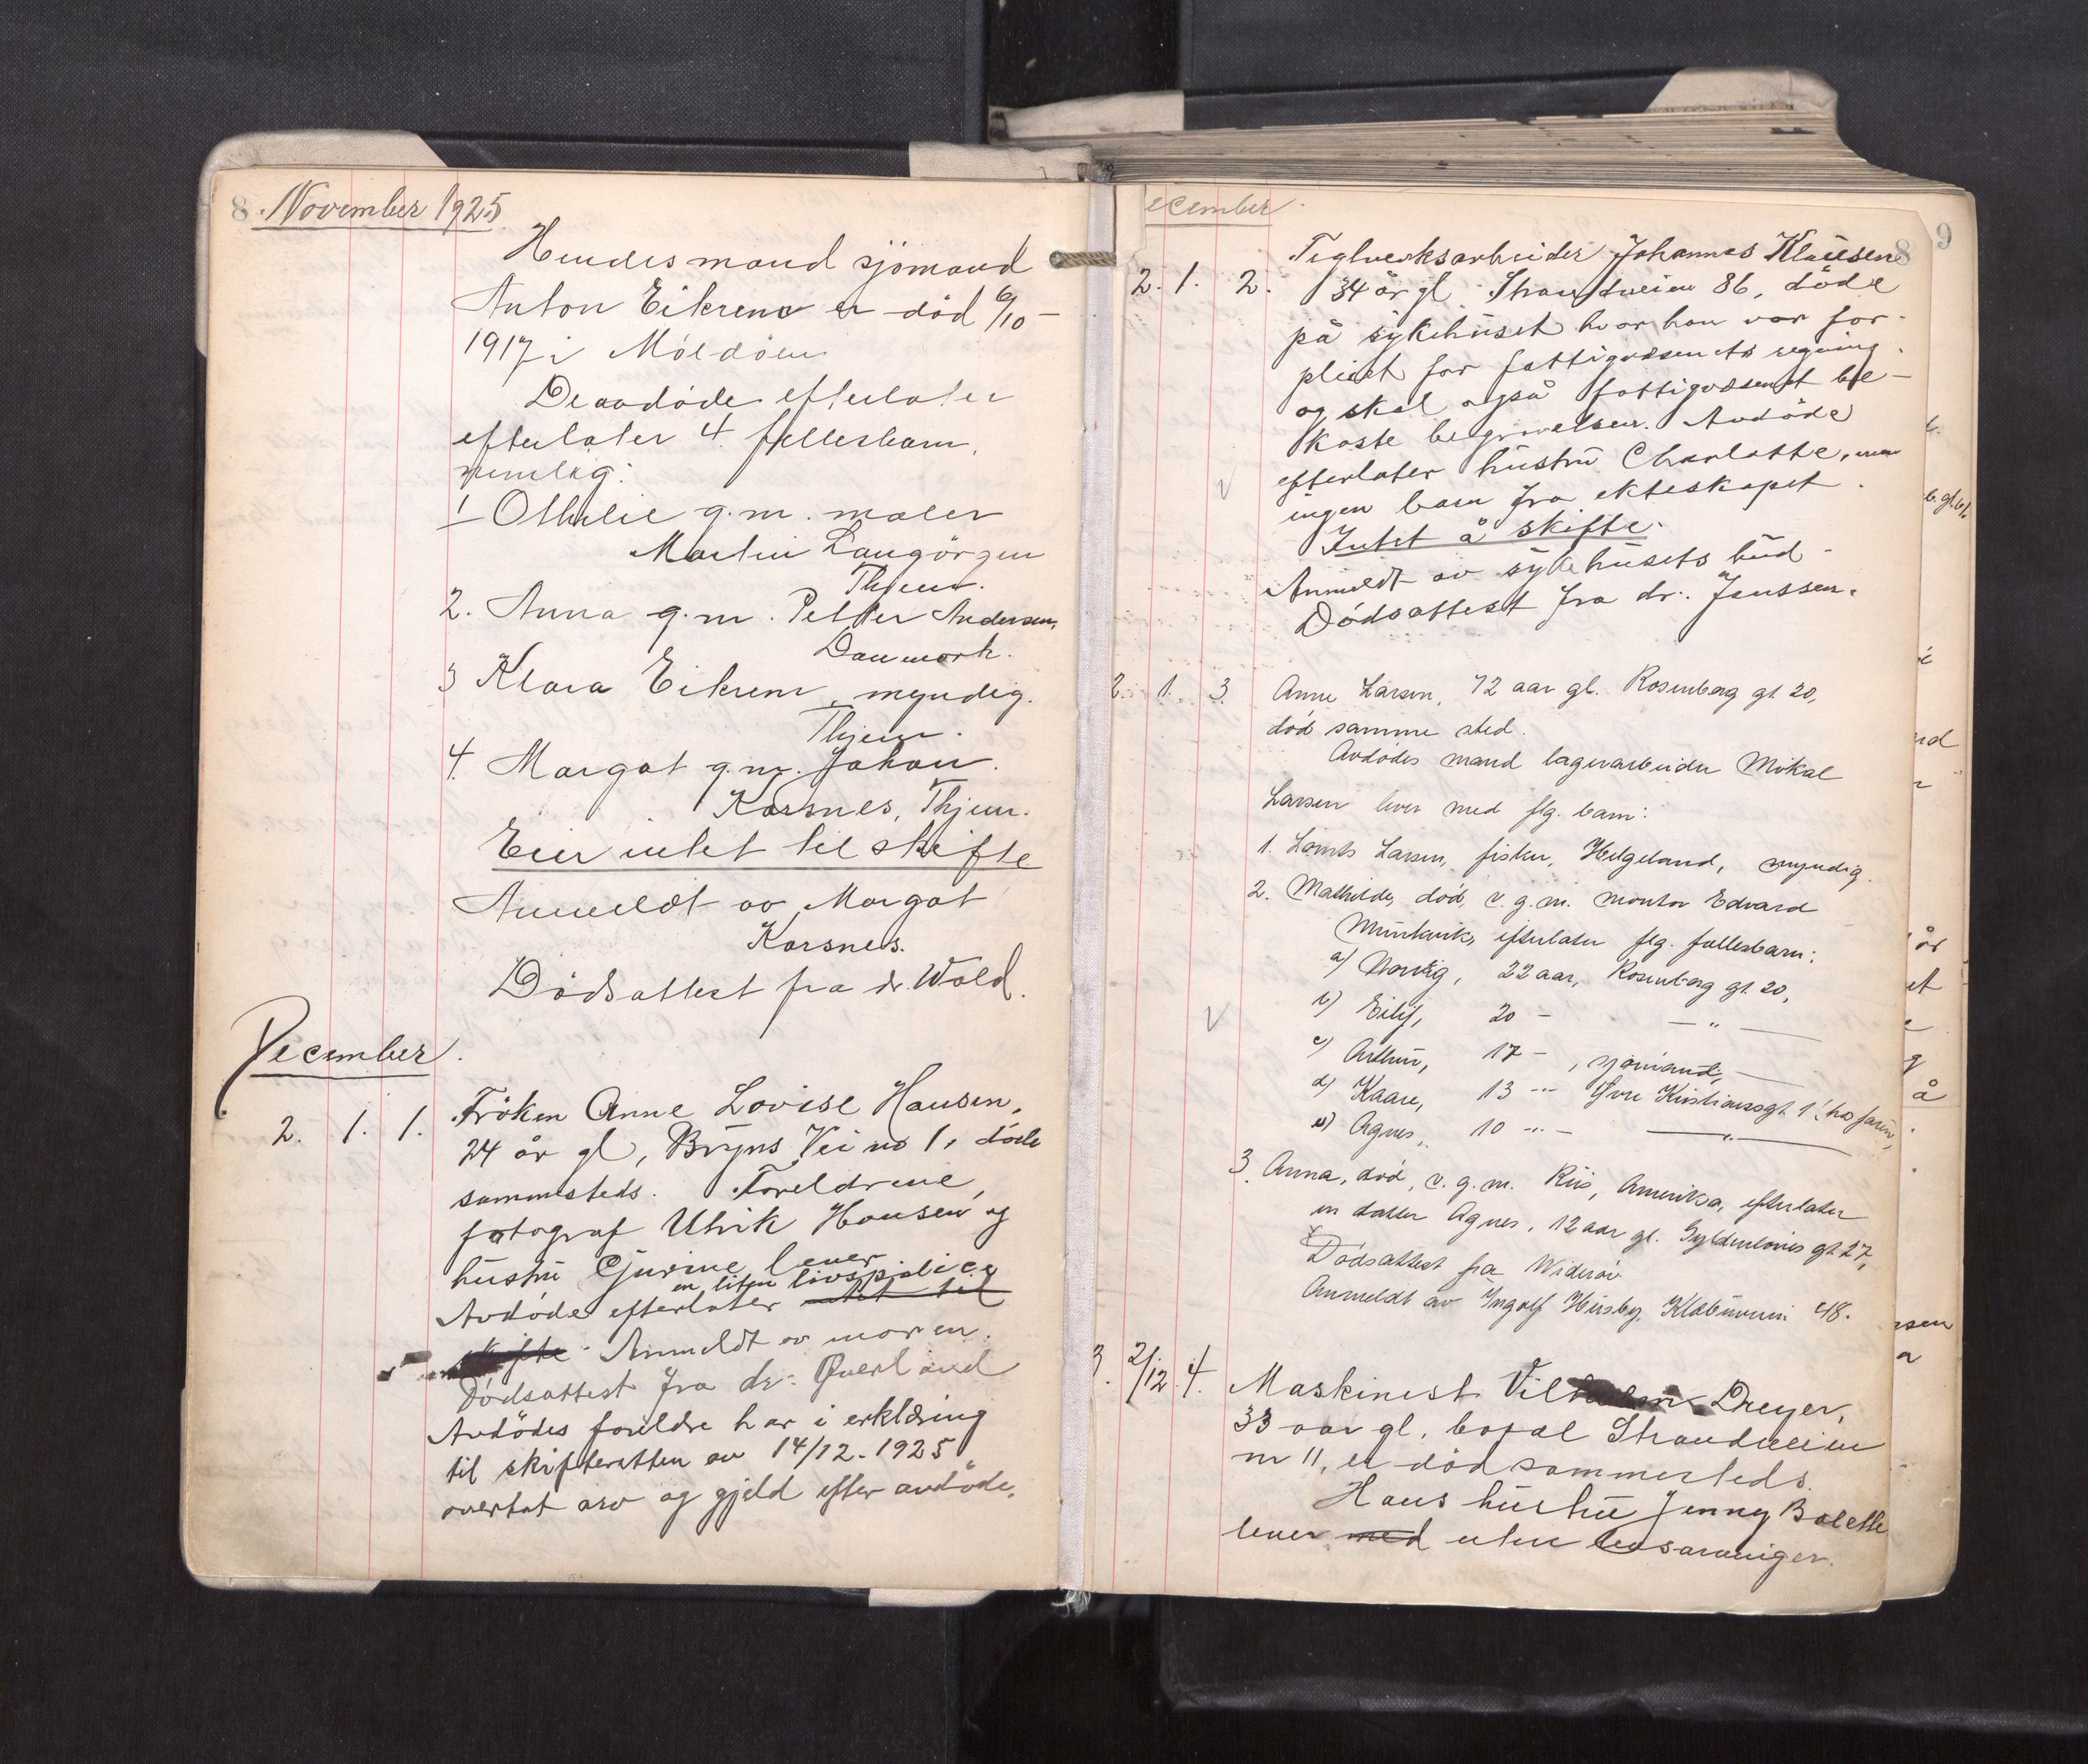 8. November 1925
Hendes mand sjömand
Anton Eikrem er död 6/10 -
1917 i Möldöen
De avdöde efterlater
efterlater 4 fellesbarn,
nemlig:
1 Othilie g.m. maler
Martin Langörgen
Thjem.
2. Anna g.m. Petter Andersen,
Danmark.
3 Klara Eikrem, myndig.
Thjem.
4. Margot g.m. Johan
Korsnes, Thjem.
Eier intet til skifte
Anmeldt av Margot
Korsnes.
Dödsattest fra dr. Wold.
December.
2. 1. 1. Fröken Anne Lovise Hansen,
24 år gl, Bryns Vei no 1, döde
sammesteds. Foreldrene,
fotograf Ulrik Hansen og
hustru Gjurine lever
en liten livspolice
Avdöde efterlater intet til
skifte. Anmeldt av moren.
Dödsattest fra dr. Överland
Avdödes foreldre har i erklæring
til skifteretten av 14/12-1925
overtat arv og gjeld efter avdöde.
ecember
8 9
Teglverksarbeider Johannes Klausen
2. 1. 2. 34 år gl Strandveien 86, döde
på sykehuset hvor han var for-
pleiet for fattigvæsenets regning
og skal også fattigvæsenet be-
koste begravelsen. Avdöde
efterlater hustru Charlotte, men
ingen barn fra ekteskapet.
Intet å skifte.
Anmeldt av sykehusets bud -
Dödsattest fra dr. Janssen.
2. 1. 3. Anne Larsen, 72 aar gl. Rosenborg gt 20,
död samme sted.
Avdödes mand lagerarbeider Mikal
Larsen lever med flg. barn:
1. Lorents Larsen, fisker, Helgeland, myndig.
2. Mathilde, död, v. g.m. montör Edvard
Muntavik, efterlater flg. fellesbarn:
a) Norvig, 22 aar, Rosenborg gt 20,
b) Eilif, 20 - — " —
c) Arthur, 17 - , sjömand, —
d) Kaare, 13 -"- Övre Kristiansgt 1 (hos faren)
e) Agnes, 10 -"- — " —
3. Anna, död, v. g.m. Riis, Amerika, efterlater
en datter Agnes, 12 aar gl. Gyldenlöves gt 27,
Dödsattest fra Wideröe
Anmeldt av Ingolf Husby, Klæbuveien 48.
3. 2/12 4. Maskinist Vilhelm Dreyer,
33 aar gl, bopæl Strandveien
nr 11, er död sammesteds.
Hans hustru Jenny Bolette
lever med uten livsarvinger.